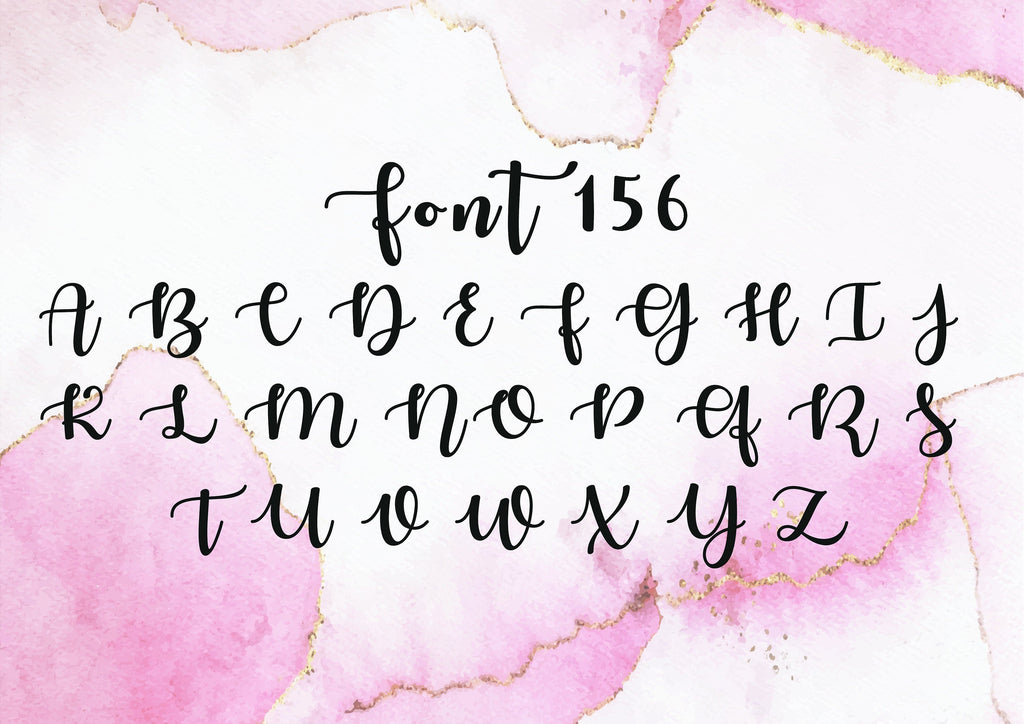 font 156
A B C D E F G H I J
K L M N O P Q R S
T U V W X Y Z